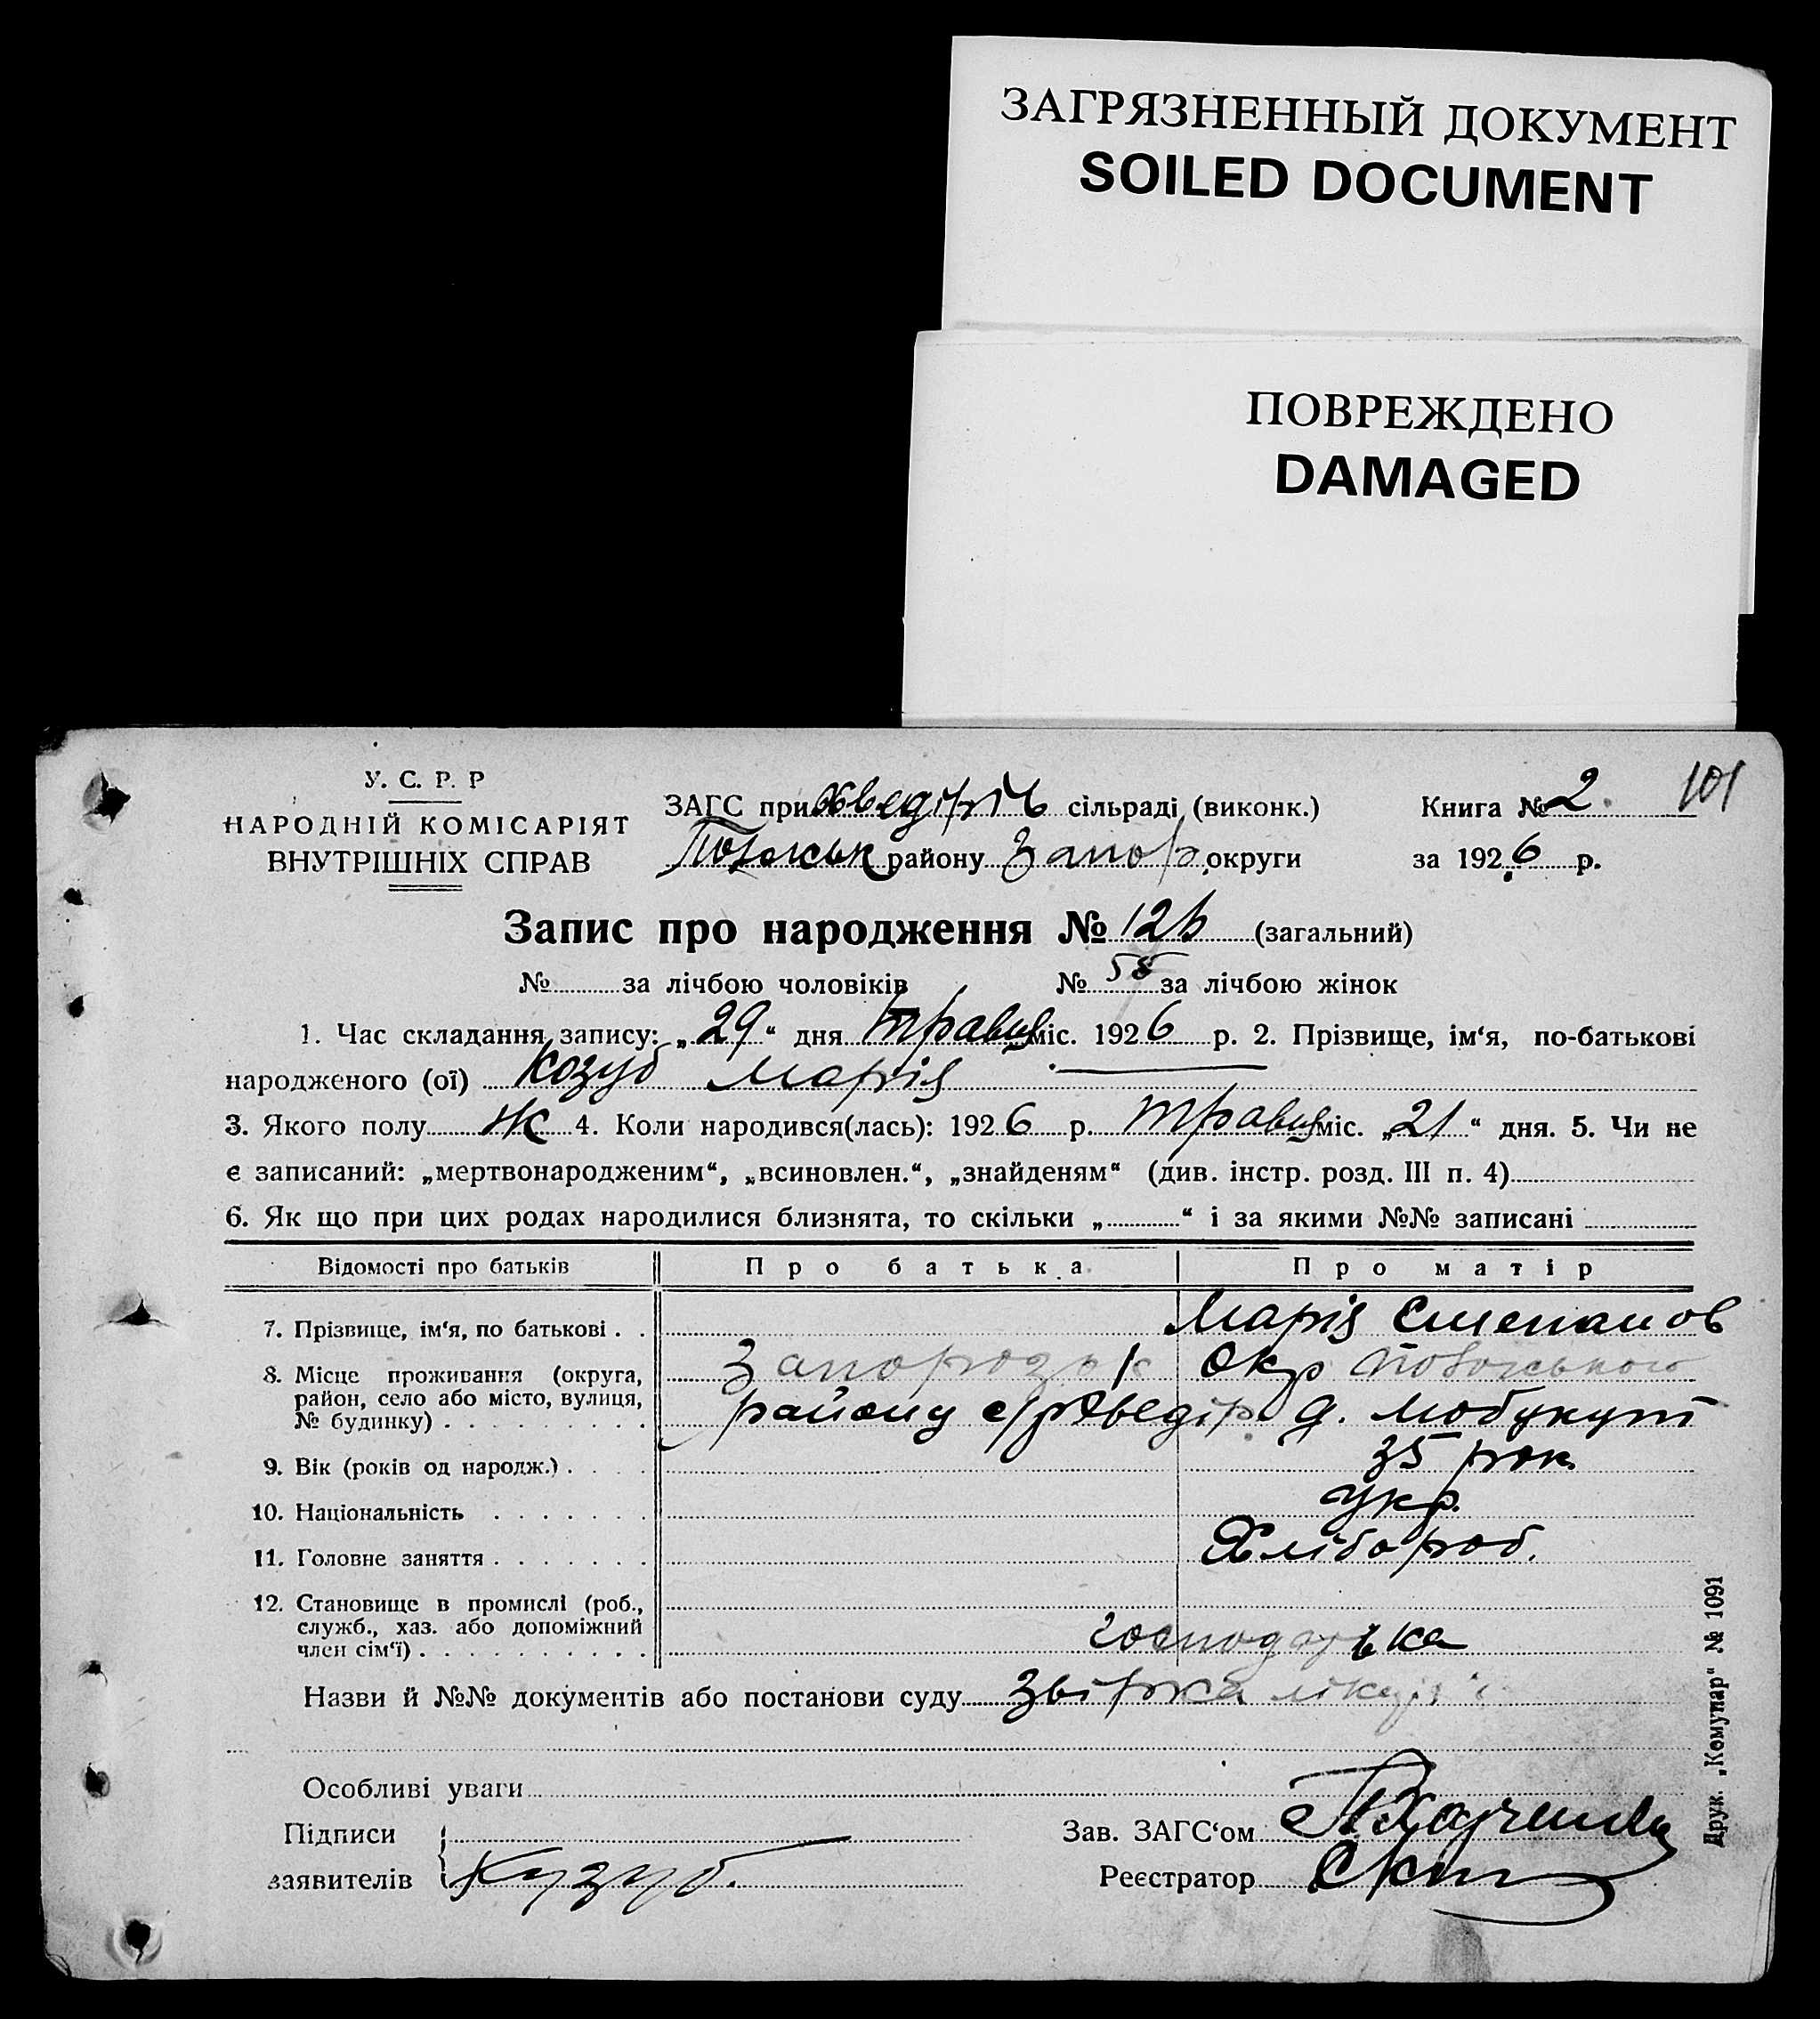 ЗАГРЯЗНЕННЫЙ ДОКУМЕНТ
SOILED DOCUMENT
ПОВРЕЖДЕНО
DAMAGED
101
У. С. Р. Р
НАРОДНІЙ КОМІСАРІЯТ
ВНУТРІШНІХ СПРАВ
ЗАГС при сільраді (виконк.)
району Запор. округи
Книга № 2
за 1926 р.
Запис про народження № (загальний)
№ за лічбою чоловіків № 58 за лічбою жінок
1. Час складання запису: „29“ дня травня міс. 1926 р. 2. Прізвище, ім‘я, по-батькові
народженого (ої) Козуб Марія
3. Якого полу Ж 4. Коли народився(лась): 1926 р. травня міс. „21“ дня. 5. Чи не
є записаний: „мертвонародженим“, „всиновлен.“, „знайденям“ (див. інстр. розд. III п. 4)
6. Як що при цих родах народилися близнята, то скільки „ “ і за якими №№ записані
Відомості про батьків Про батька Про матір
7. Прізвище, ім‘я, по батькові . . Марія Степанов
8. Місце проживання (округа, Запорозьк Окр
район, село або місто, вулиця, району с/р д.
№ будинку)
9. Вік (років од народж.) . . . . 35 рок
10. Національність . . . . . . . Укр.
11. Головне заняття . . . . . . . Хлібороб.
12. Становище в промислі (роб.,
служб., хаз. або допоміжний господарька
член сім‘ї) . . . . . . . . . .
Назви й №№ документів або постанови суду
Особливі уваги
Підписи
заявителів Кузуб.
Зав. ЗАГС‘ом
Реєстратор
Друк. „Комунар“ № 1091